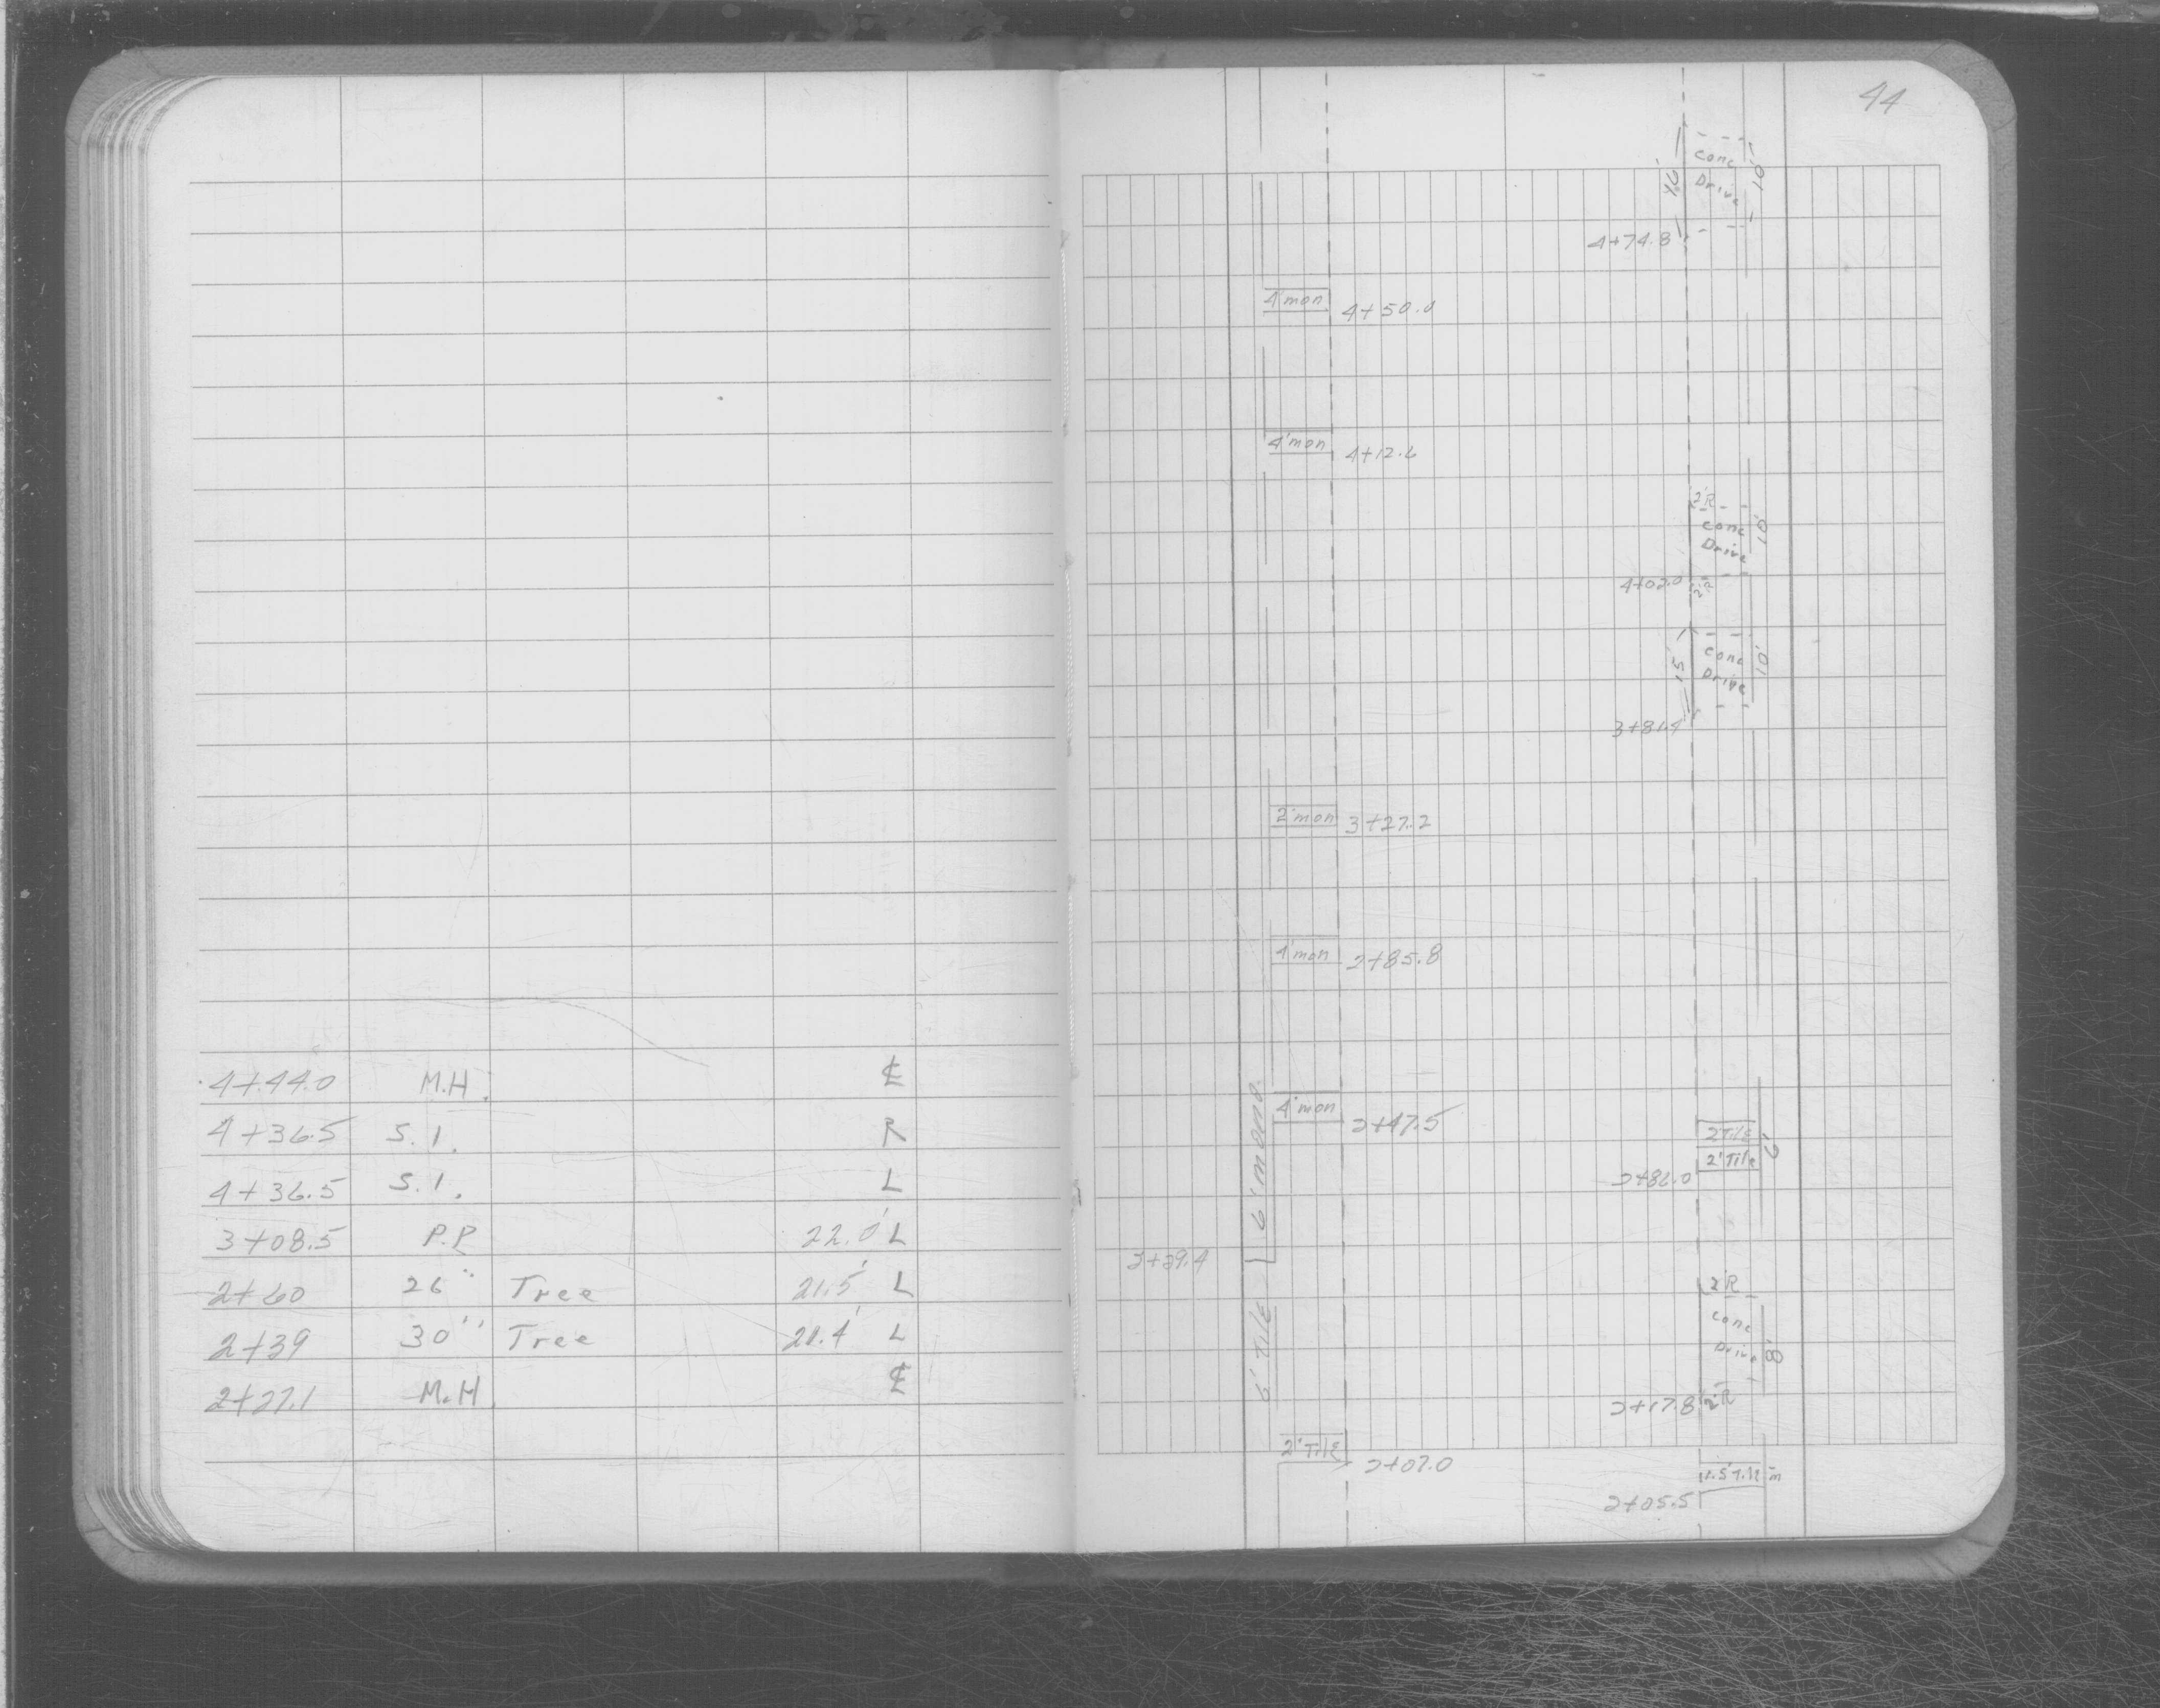 4+44.0 M.H. ℄
4+36.5 S.I. R
4+36.5 S.I. L
3+08.5 P.P. 22.0' L
2+60 26" Tree 21.5' L
2+39 30" Tree 21.4' L
2+27.1 M.H. ℄
44
Conc
Drive
16'
10'
4+74.8
4'mon 4+50.0
4'mon 4+12.6
2'R
Conc
Drive
10'
4+02.0 2'R
Conc
Drive
15'
10'
3+81.4
2'mon 3+27.2
4'mon 2+85.8
4'mon 2+47.5
6' mono.
2'Tile
2'Tile
6'
2+86.0
2+39.4
6' Tile
2'R
Conc
Drive
8'
2+17.8 2'R
2'Tile 2+07.0
1.5'Tile
2+05.5